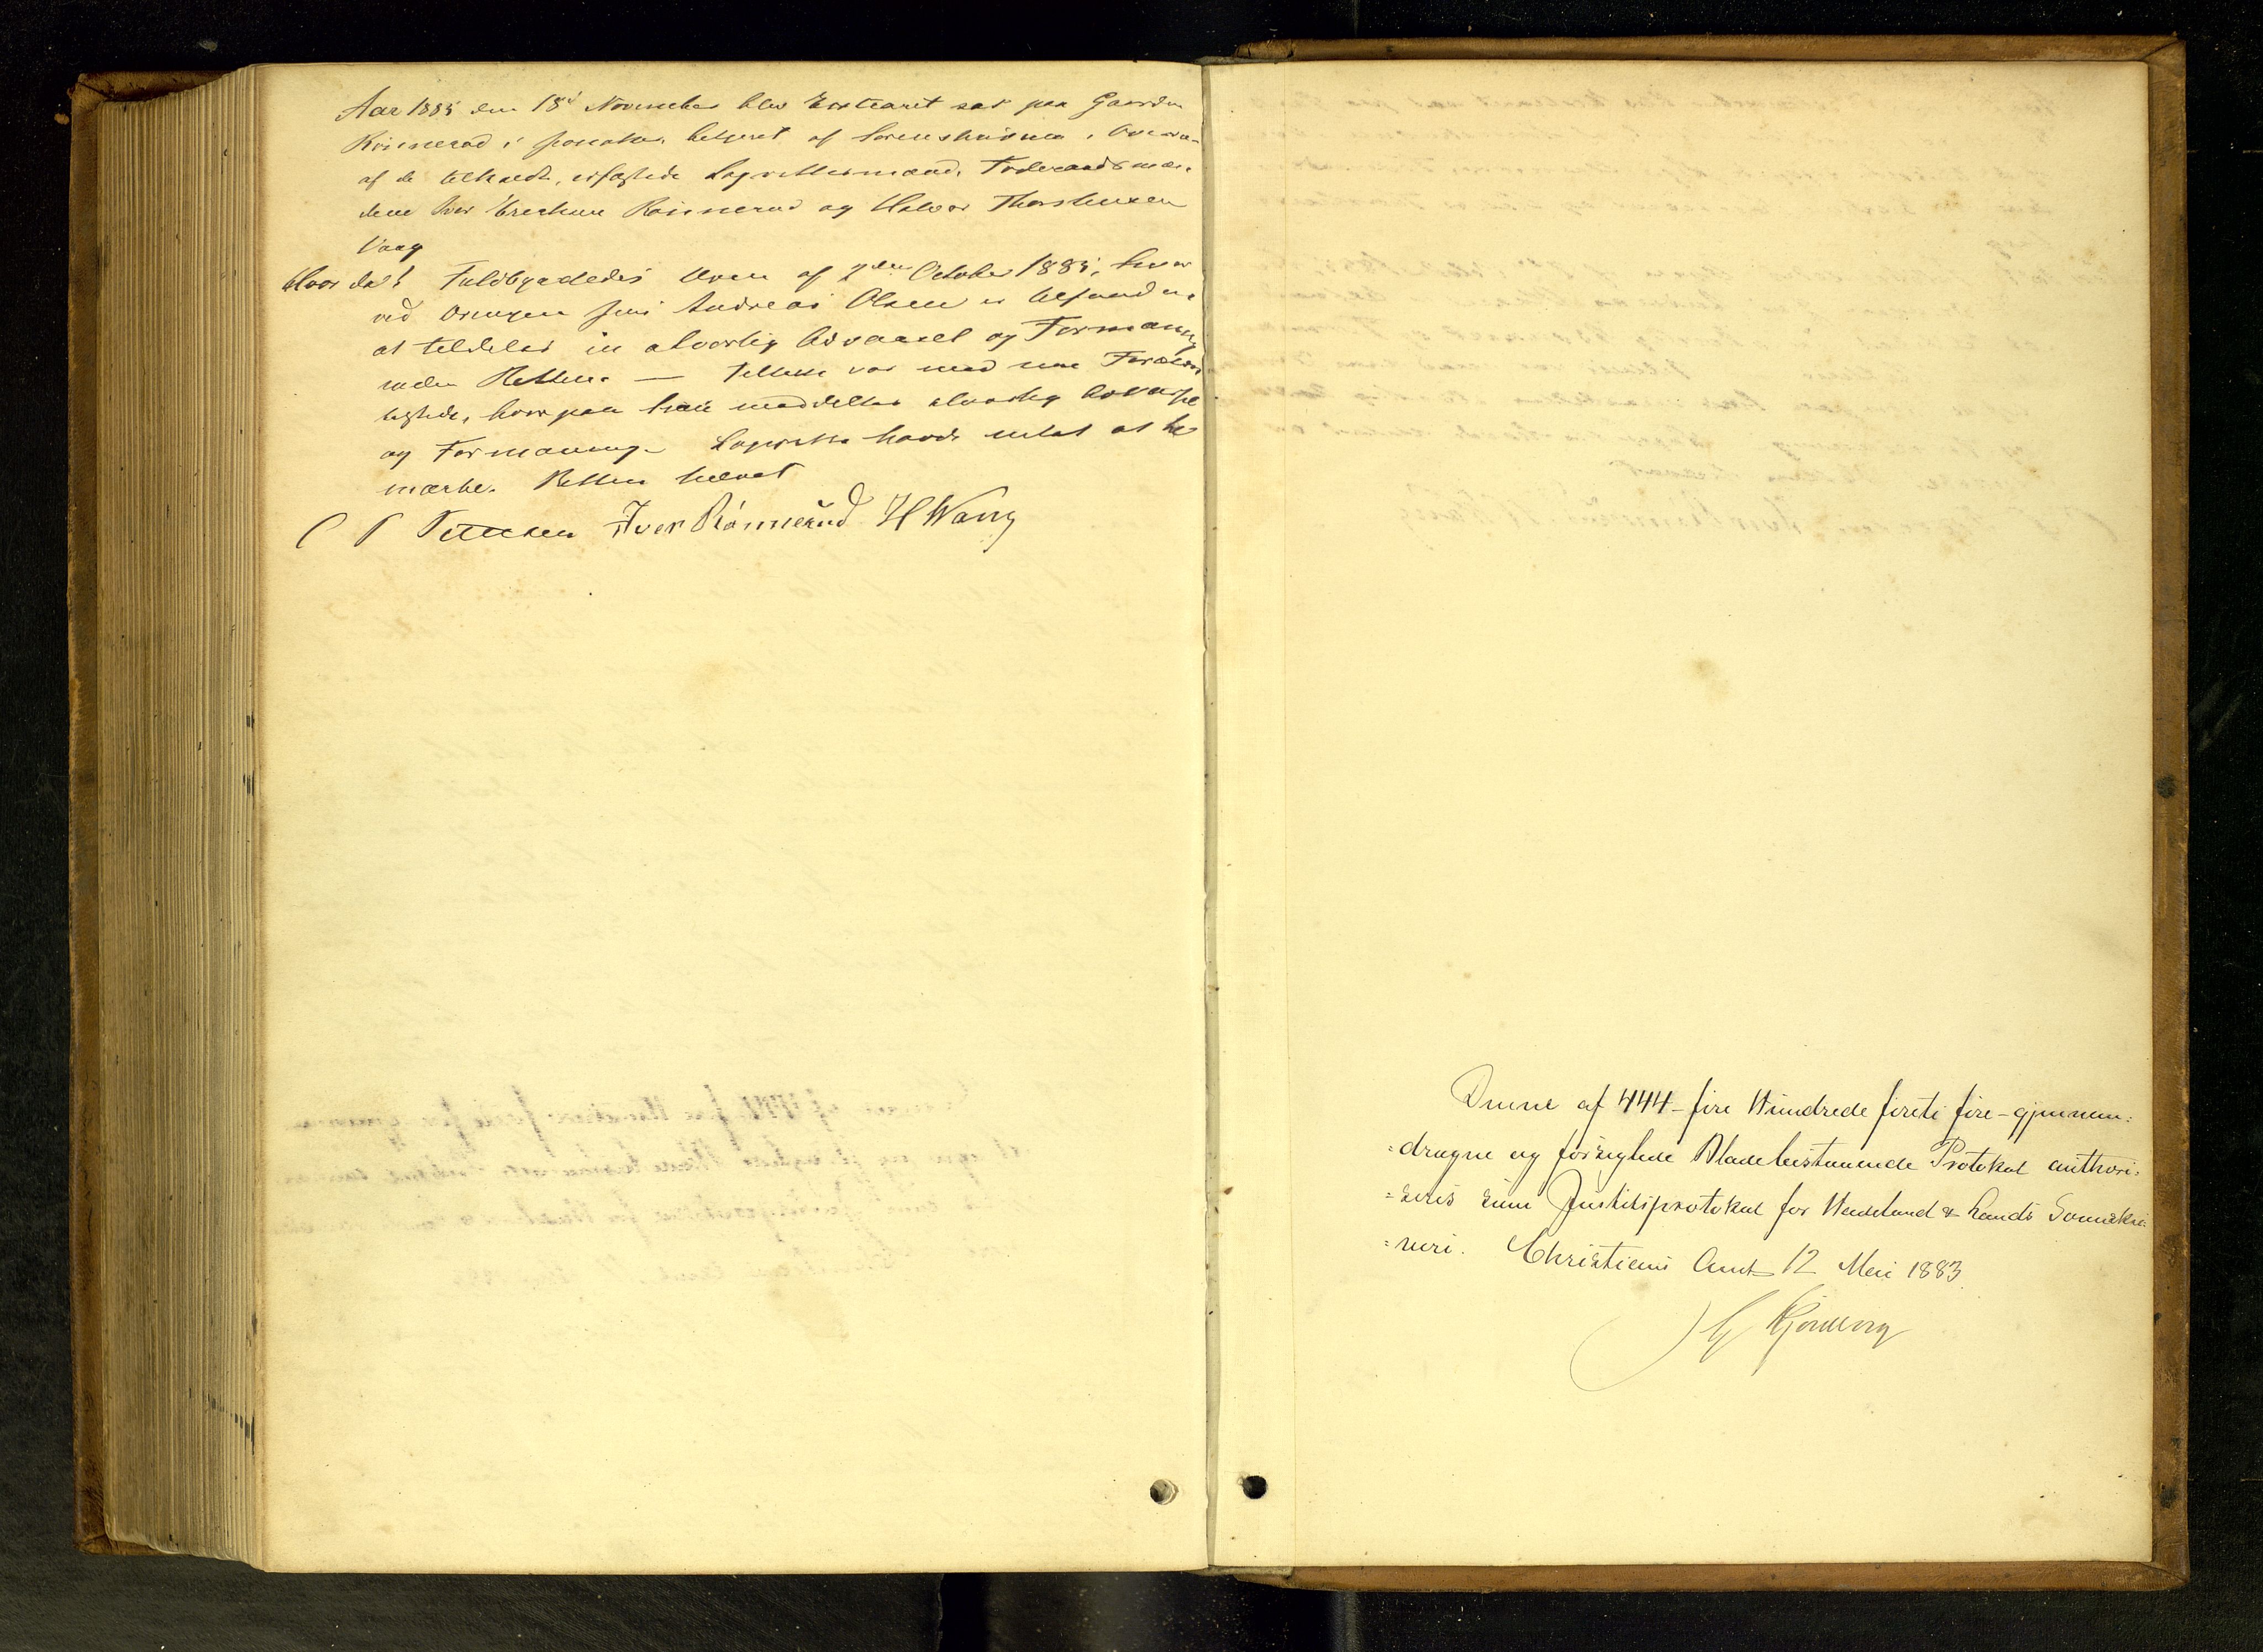 Aar 1885 den 18d November blev Extraret sat paa Gaarden
Rönnerud i betjent af Sorenskriveren, Overvæ-
af de tilkaldte, edfæstede Lagrettesmænd, Foderaadsmæn-
dene Iver Rönnerud og Halvor Thorstensen
Vaag
Hvor da! Fuldbyrdedes Dom af 7den October 1885, hvor
ved Drengen Jens Andreas Olsen er befunden
at tildeles en alvorlig Advarsel og Formaning
inden Retten. — Tiltalte var med sine Foræld
tilstede, hvorpaa ham meddeltes alvorlig Advarsel
og Formaning. Lagrettet havde intet at be
mærke. Retten hævet
Iver Rönnerud H Waag
Denne af 444 - fire Hundrede fireti fire - gjennem=
=dragne og forseglede Blade bestaaende Protokol authori=
=seres som Justitsprotokol for Hadeland & Lands Sorenskri=
=veri. Christians Amt 12 Mai 1883.